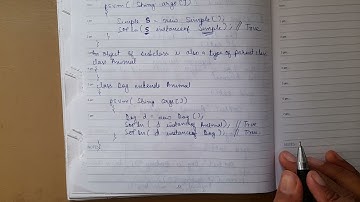 psvm( String args[])
{
Simple S = new Simple();
Sopln(S instanceof Simple); // True
}
An object of subclass is also a type of parent class
class Animal
{
}
class Dog extends Animal
{
psvm( String args[])
{
Dog d = new Dog();
Sopln( d instanceof Animal); // True
Sopln( d instanceof Dog); // True
}
}